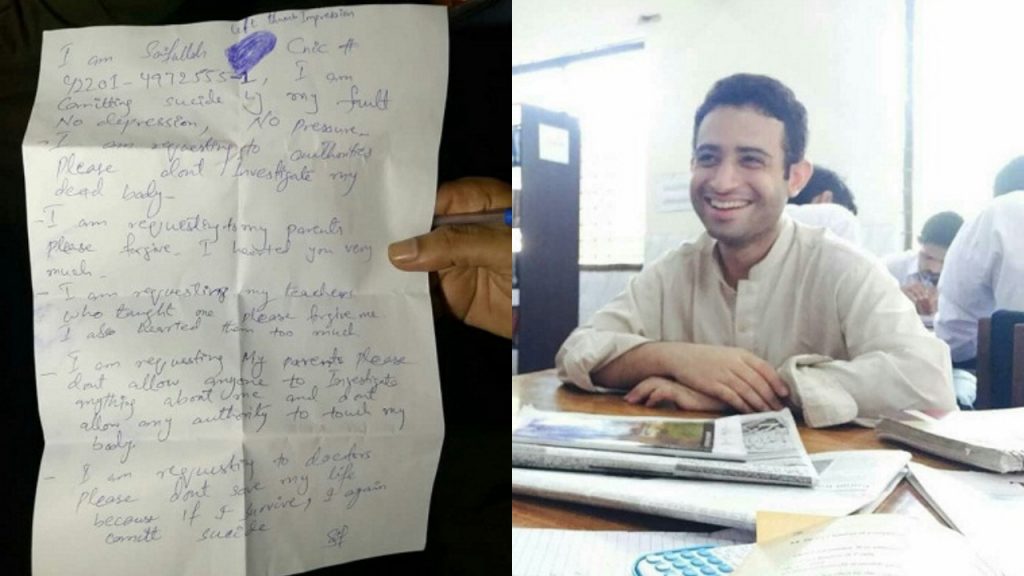 left thumb Impression
I am Saifullah Cnic #
42201-4972555-1, I am
Comitting sucide by my fault
No depression, No pressure.
- I am requesting to authorities
Please dont Investigate my
dead body-
- I am requesting to my parents
please forgive. I hearted you very
much-
- I am requesting my teachers
who taught me please forgive me
I also hearted them too much
- I am requesting My parents please
dont allow anyone to Investigate
anything about me and dont
allow any authority to touch my
body
- I am requesting to doctors
Please dont save my life
because if I survive, I again
comitt sucide